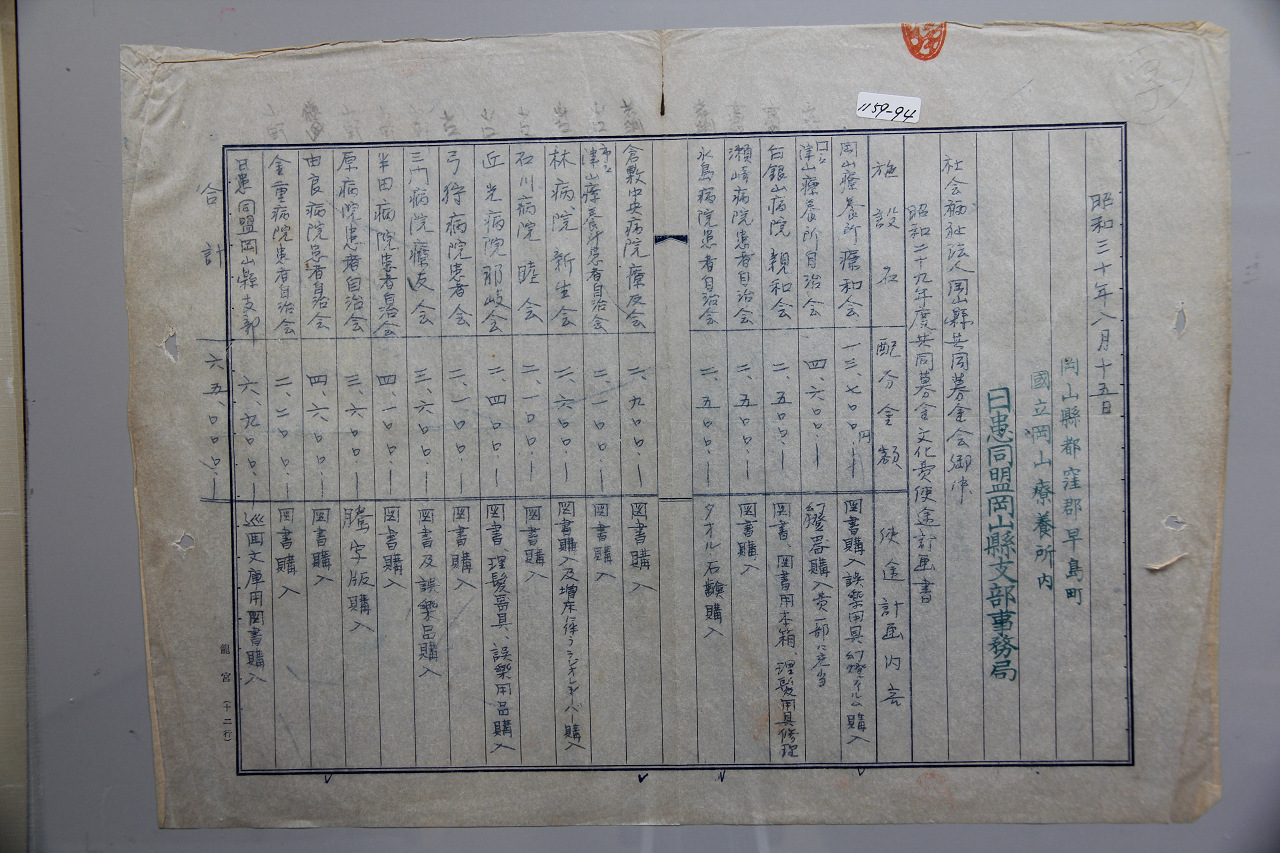 1159-94
昭和三十年八月十五日
岡山縣都窪郡早島町
國立岡山療養所内
日患同盟岡山縣支部事務局
社会福祉法人岡山縣共同募金会御中
昭和二十九年度共同募金文化費使途計画書
施設名 配分金額 使途計画内容
岡山療養所療和会 一三、七〇〇円― 図書購入誤楽用具幻燈フィルム購入
津山療養所自治会 四、六〇〇― 幻燈器購入費一部に充当
白銀山病院親和会 二、五〇〇・― 図書、図書用本箱、理髪用具修理
瀬崎病院患者自治会 二、五〇〇・― 図書購入
水島病院患者自治会 二、五〇〇・― タオル石鹸購入
倉敷中央病院療友会 二、九〇〇・― 図書購入
市立津山療養所患者自治会 二、一〇〇・― 図書購入
林病院新生会 二、六〇〇・― 図書購入及増床に伴うラジオレシーバー購入
石川病院睦会 二、一〇〇・― 図書購入
近光病院那岐会 二、四〇〇・― 図書、理髪器具、誤楽用品購入
弓狩病院患者会 二、一〇〇・― 図書購入
三門病院療友会 三、六〇〇・― 図書及誤楽品購入
半田病院患者自治会 四、一〇〇・― 図書購入
原病院患者自治会 三、六〇〇・― 謄字版購入
由良病院患者自治会 四、六〇〇・― 図書購入
金重病院患者自治会 二、二〇〇・― 図書購入
日患同盟岡山縣支部 六、九〇〇・― 巡回文庫用図書購入
合計 六五、〇〇〇・―
龍宮(十二行)